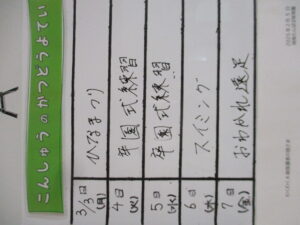 こんしゅうのかつどうよてい
3/3日(月) ひなまつり
4日(火) 卒園式練習
5日(水) 卒園式練習
6日(木) スイミング
7日(金) おわかれ遠足